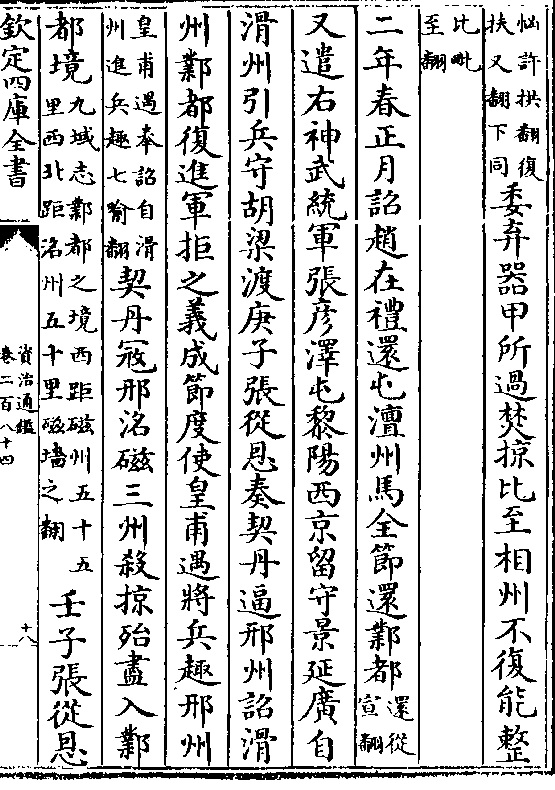 恟許拱翻復扶又翻下同委弃器甲所過焚掠比至相州不復能整
比毗至翻
二年春正月詔趙在禮還屯澶州馬全節還鄴都還從宣翻
又遣右神武統軍張彦澤屯黎陽西京留守景延廣自
滑州引兵守胡梁渡庚子張從恩奏契丹逼邢州詔滑
州鄴都復進軍拒之義成節度使皇甫遇將兵趣邢州
皇甫遇奉詔自滑州進兵趣七喻翻契丹冦邢洺磁三州殺掠殆盡入鄴
都境九域志鄴都之境西距磁州五十五里西北距洺州五十里磁墻之翻壬子張從恩
欽定四庫全書
資治通鑑
卷二百八十四
十八